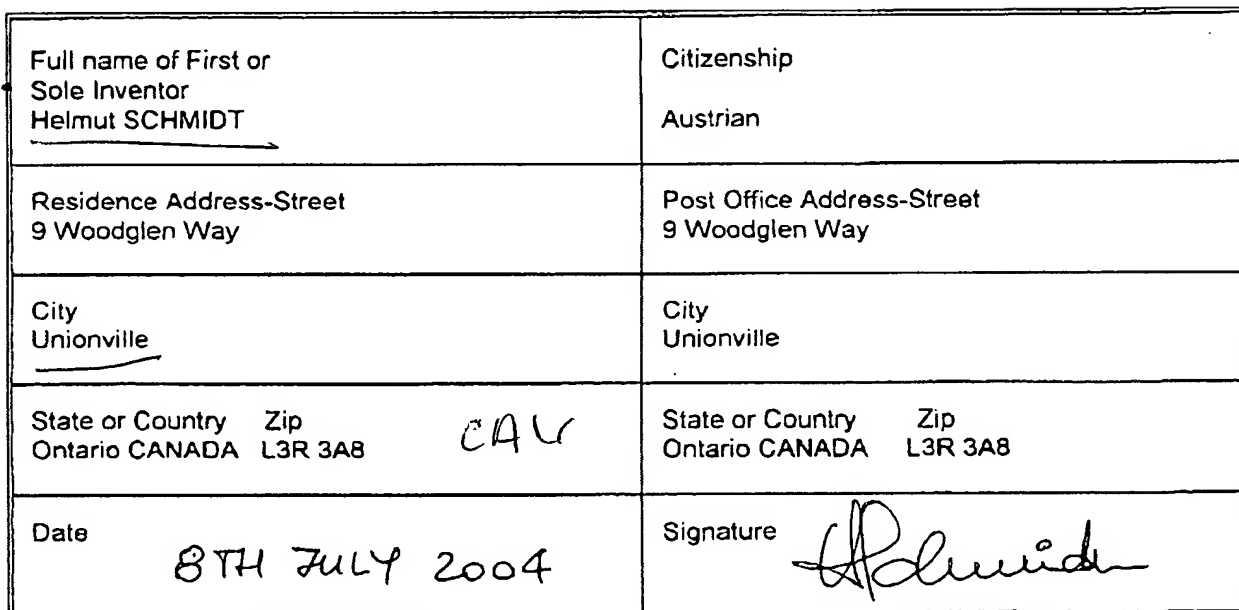 Full name of First or
Sole Inventor
Helmut SCHMIDT
Citizenship
Austrian
Residence Address-Street
9 Woodglen Way
Post Office Address-Street
9 Woodglen Way
City
Unionville
City
Unionville
State or Country Zip
Ontario CANADA L3R 3A8
State or Country Zip
Ontario CANADA L3R 3A8
Date
8TH JULY 2004
Signature